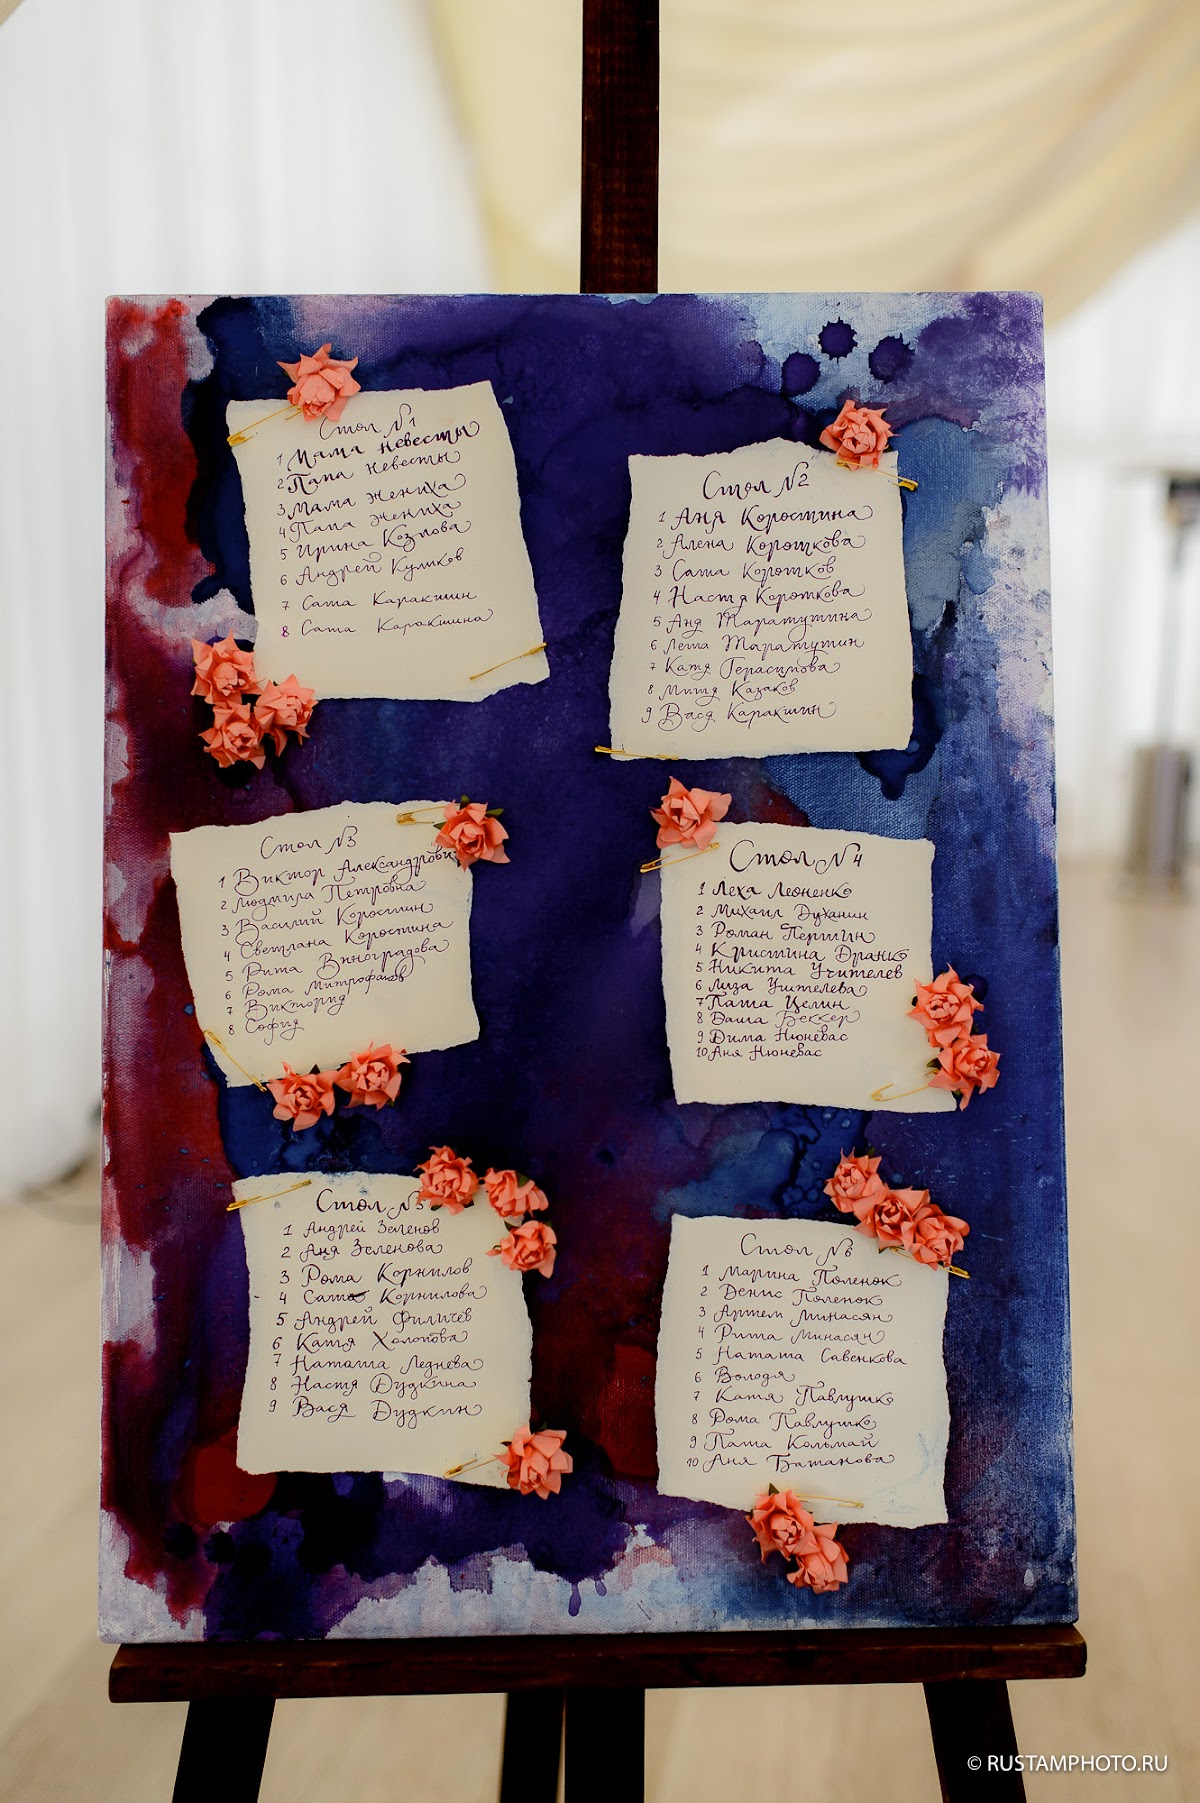 Стол №1
1 Мама невесты
2 Папа невесты
3 Мама жениха
4 Папа жениха
5 Ирина Козлова
6 Андрей Куликов
7 Саша Каракшин
8 Саша Каракшина
Стол №2
1 Аня Коростина
2 Алена Короткова
3 Саша Коротков
4 Настя Короткова
5 Аня Таратутина
6 Леша Таратутин
7 Катя Герасимова
8 Миша Казаков
9 Вася Каракшин
Стол №3
1 Виктор Александрович
2 Людмила Петровна
3 Василий Коростин
4 Светлана Коростина
5 Рита Виноградова
6 Рома Митрофанов
7 Виктория
8 София
Стол №4
1 Леха Леоненко
2 Михаил Духанин
3 Роман Першин
4 Кристина Дранко
5 Никита Учителев
6 Лиза Учителева
7 Паша Целин
8 Даша Беккер
9 Дима Нюневас
10 Аня Нюневас
Стол №5
1 Андрей Зеленов
2 Аня Зеленова
3 Рома Корнилов
4 Саша Корнилова
5 Андрей Филичев
6 Катя Холопова
7 Наташа Леднева
8 Настя Дудкина
9 Вася Дудкин
Стол №6
1 Марина Поленок
2 Денис Поленок
3 Артем Минасян
4 Рита Минасян
5 Наташа Савенкова
6 Володя
7 Катя Павлушко
8 Рома Павлушко
9 Паша Кольмай
10 Аня Батанова
© RUSTAMPHOTO.RU